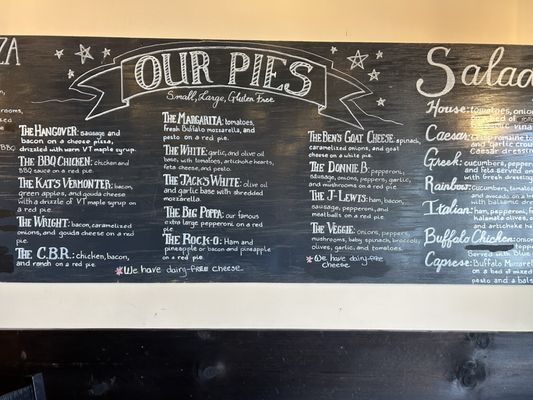 ZA
OUR PIES
Small, Large, Gluten Free
THE HANGOVER: sausage and
bacon on a cheese pizza,
drizzled with warm VT maple syrup.
THE BBQ CHICKEN: chicken and
BBQ sauce on a red pie.
THE KAT'S VERMONTER: bacon,
green apples, and gouda cheese
with a drizzle of VT maple syrup
on a red pie.
THE WRIGHT: bacon, caramelized
onions, and gouda cheese on a
red pie.
THE C.B.R.: chicken, bacon,
and ranch on a red pie.
THE MARGARITA: tomatoes,
fresh Buffalo mozzarella, and
pesto on a red pie.
THE WHITE: garlic, and olive oil
base, with tomatoes, artichoke hearts,
feta cheese, and pesto.
THE JACK'S WHITE: olive oil
and garlic base with shredded
mozzarella.
THE BIG POPPA: our famous
extra large pepperoni on a
red pie.
THE ROCK-O: Ham and
pineapple or bacon and pineapple
on a red pie.
We have dairy-free cheese
THE BEN'S GOAT CHEESE: spinach,
caramelized onions, and goat
cheese on a white pie.
THE DONNIE B: pepperoni,
sausage, onions, peppers, garlic,
and mushrooms on a red pie.
THE J-LEWIS: ham, bacon,
sausage, pepperoni, and
meatballs on a red pie.
THE VEGGIE: onions, peppers,
mushrooms, baby spinach, broccoli,
olives, garlic, and tomatoes.
We have dairy-free
cheese
Salad
House: tomatoes, onions
Caesar: crisp romaine
and garlic
Caesar dressing
Greek: cucumbers, pepper
and feta served
with fresh dressing
Rainbow: cucumbers, tomato
and avocado on a
with balsamic
Italian: ham, pepperoni,
kalamata olives,
and artichokes
Buffalo Chicken:
served with blue
Caprese: Buffalo Mozzarell
on a bed of mixed
pesto and a bals